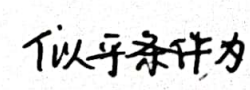 似乎条件为